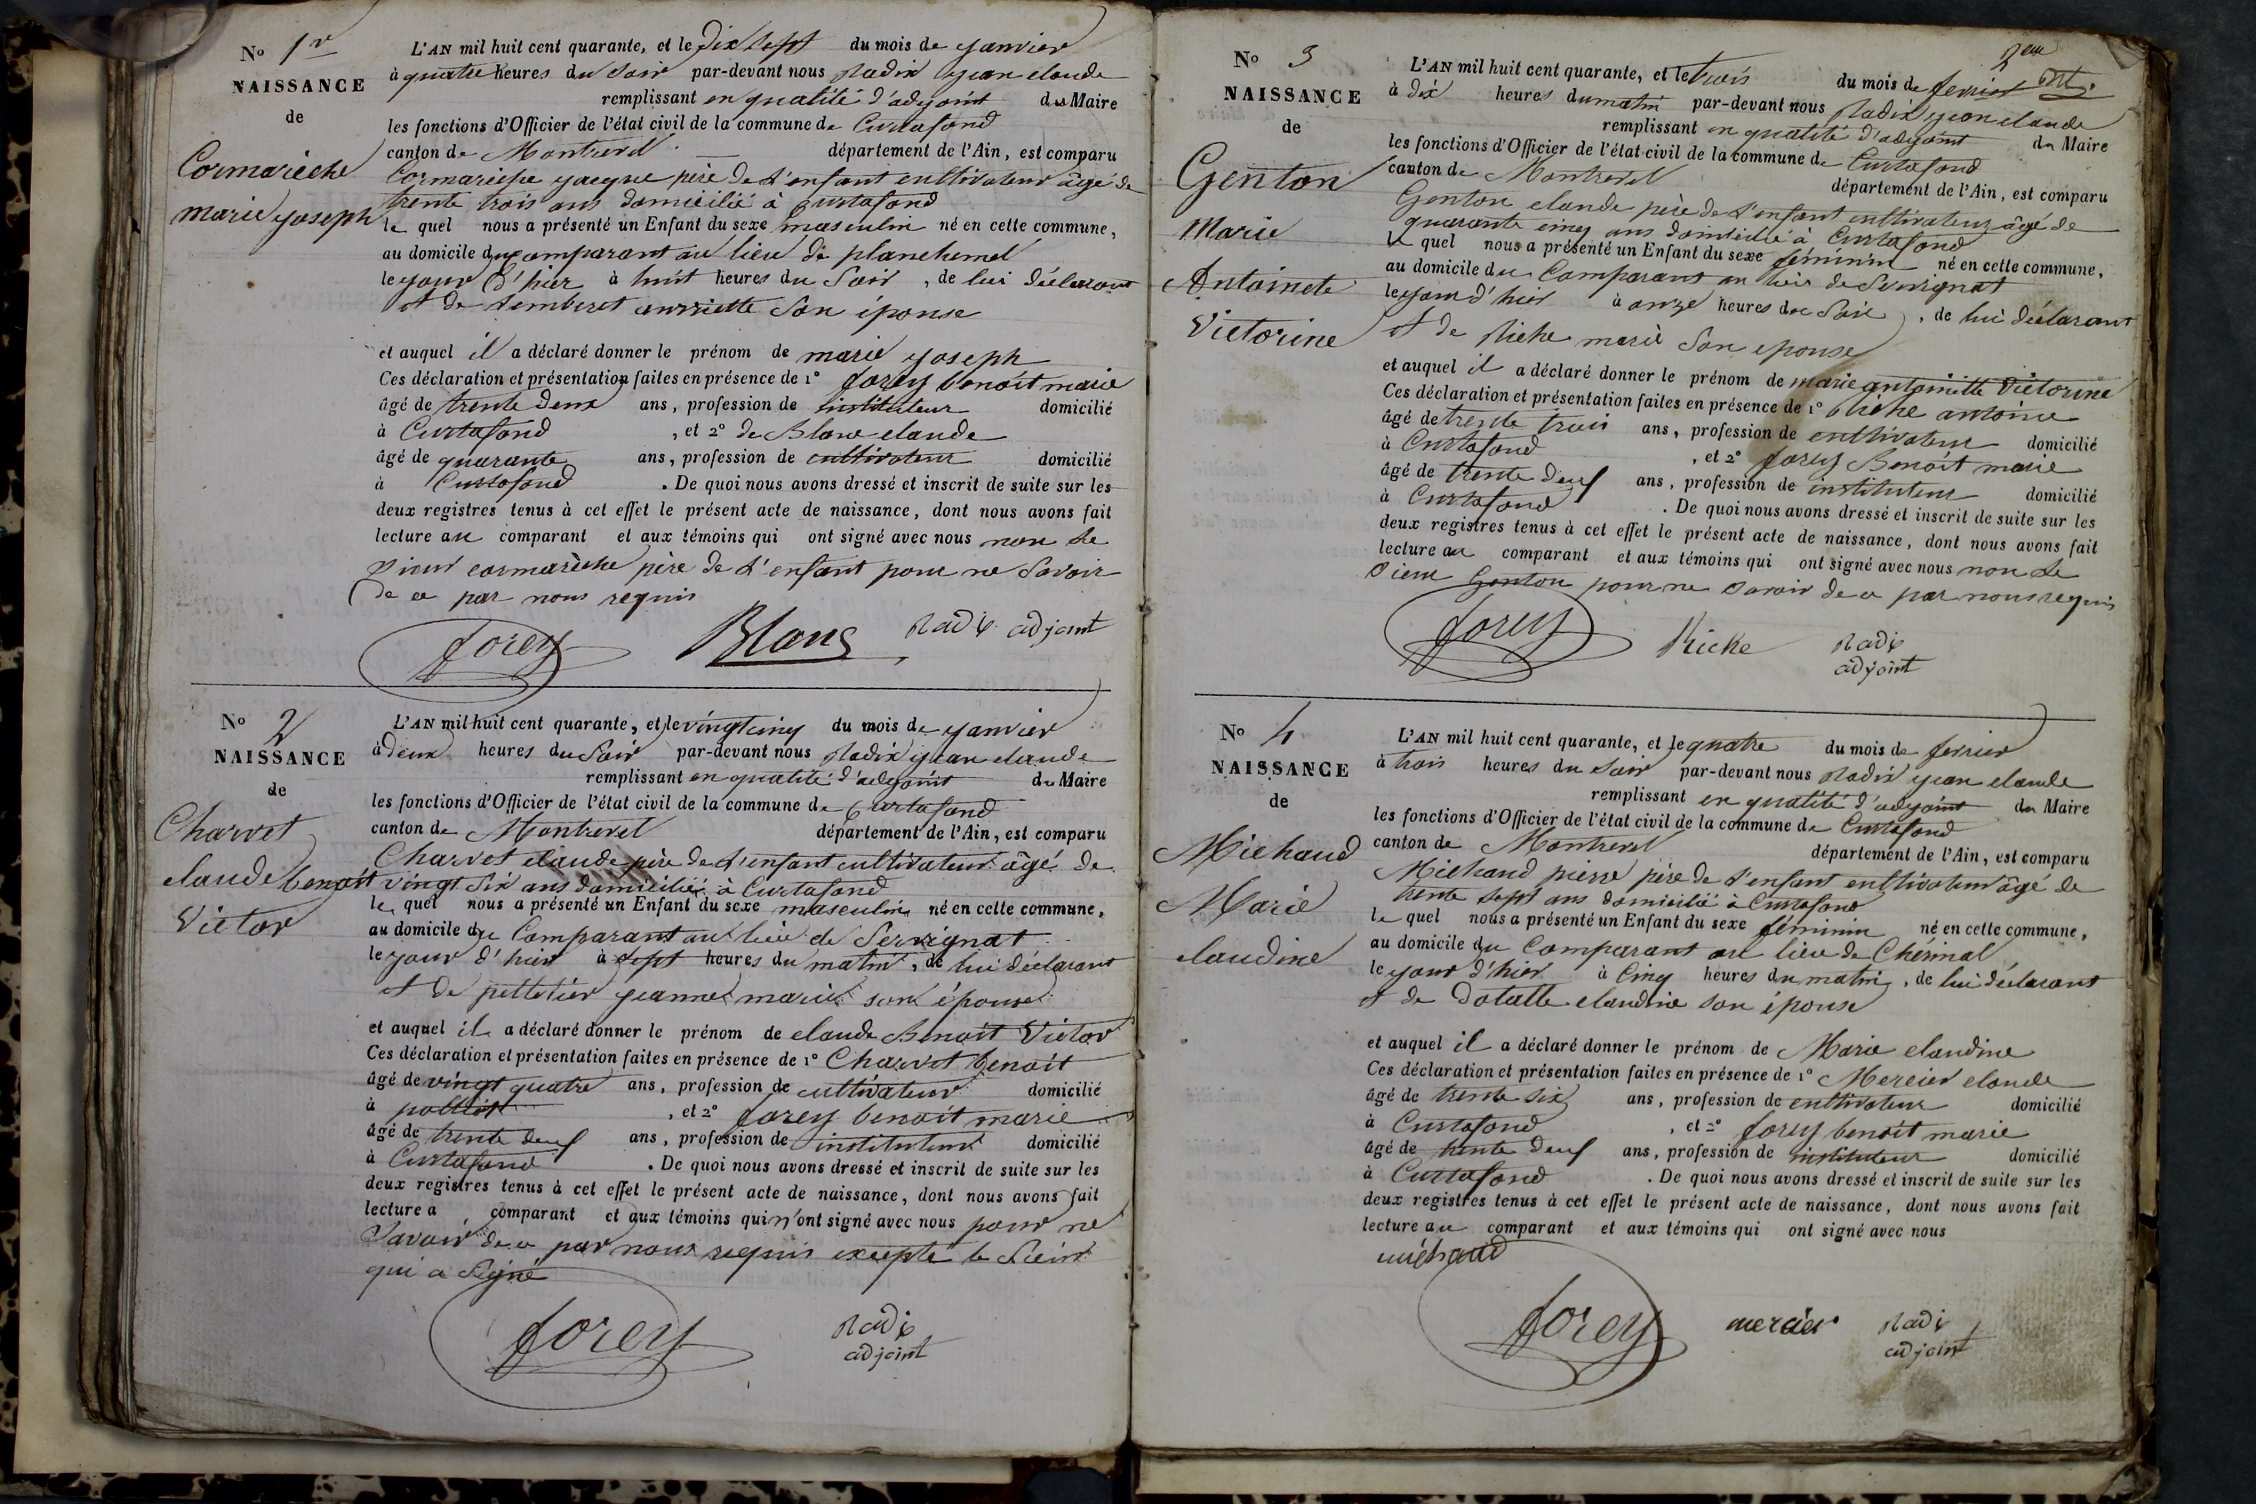 N° 1er
NAISSANCE
de
Cormarèche
marie joseph
L'AN mil huit cent quarante, et le dix sept du mois de janvier
à quatre heures du soir par-devant nous Nadix jean claude
remplissant en qualité d'adjoint du Maire
les fonctions d'Officier de l'état civil de la commune de Curtafond
canton de Montrevel département de l'Ain, est comparu
Cormarèche jacque père de l'enfant cultivateur âgé de
trente trois ans domicilié à Curtafond
le quel nous a présenté un Enfant du sexe masculin né en cette commune,
au domicile du comparant au lieu de planchemel
le jour d'hier à huit heures du soir, de lui déclarant
et de son épouse
et auquel il a déclaré donner le prénom de marie joseph
Ces déclaration et présentation faites en présence de 1° forey benoit marie
âgé de trente deux ans, profession de instituteur domicilié
à Curtafond, et 2° de Blanc claude
âgé de quarante ans, profession de cultivateur domicilié
à Curtafond. De quoi nous avons dressé et inscrit de suite sur les
deux registres tenus à cet effet le présent acte de naissance, dont nous avons fait
lecture au comparant et aux témoins qui ont signé avec nous non le
sieur cormarèche père de l'enfant pour ne savoir
de ce par nous requis
forey Blanc Nadix adjoint
N° 2
NAISSANCE
de
Charvet
claude benoit
Victor
L'AN mil huit cent quarante, et le vingt cinq du mois de janvier
à deux heures du soir par-devant nous Nadix jean claude
remplissant en qualité d'adjoint du Maire
les fonctions d'Officier de l'état civil de la commune de Curtafond
canton de Montrevel département de l'Ain, est comparu
Charvet claude père de l'enfant cultivateur âgé de
vingt six ans domicilié à Curtafond
le quel nous a présenté un Enfant du sexe masculin né en cette commune,
au domicile du Comparant au lieu de Servignat
le jour d'hier à sept heures du matin, de lui déclarant
et de pelletier jeanne marie son épouse
et auquel il a déclaré donner le prénom de claude Benoit Victor
Ces déclaration et présentation faites en présence de 1° Charvet benoit
âgé de vingt quatre ans, profession de cultivateur domicilié
à polliat, et 2° forey benoit marie
âgé de trente deux ans, profession de instituteur domicilié
à Curtafond. De quoi nous avons dressé et inscrit de suite sur les
deux registres tenus à cet effet le présent acte de naissance, dont nous avons fait
lecture a comparant et aux témoins qui n'ont signé avec nous pour ne
savoir de ce par nous requis excepté le
qui a signé
forey Nadix
adjoint
2eme
N° 3
NAISSANCE
de
Genton
Marie
Antoinete
Victorine
L'AN mil huit cent quarante, et le trois du mois de fevrier
à dix heures du matin par-devant nous Nadix jean claude
remplissant en qualité d'adjoint du Maire
les fonctions d'Officier de l'état civil de la commune de Curtafond
canton de Montrevel département de l'Ain, est comparu
Genton claude père de l'enfant cultivateur âgé de
quarante cinq ans domicilié à Curtafond
le quel nous a présenté un Enfant du sexe féminin né en cette commune,
au domicile du Comparant au lieu de Servignat
le jour d'hier à onze heures du soir, de lui déclarant
et de Riche marie son epouse
et auquel il a déclaré donner le prénom de marie antoinette Victorine
Ces déclaration et présentation faites en présence de 1° Riche antoine
âgé de trente trois ans, profession de cultivateur domicilié
à Curtafond, et 2° forey Benoit marie
âgé de trente deux ans, profession de instituteur domicilié
à Curtafond. De quoi nous avons dressé et inscrit de suite sur les
deux registres tenus à cet effet le présent acte de naissance, dont nous avons fait
lecture au comparant et aux témoins qui ont signé avec nous non le
sieur Genton pour ne savoir de ce par nous requis
forey Riche Nadix
adjoint
N° 4
NAISSANCE
de
Michaud
Marie
claudine
L'AN mil huit cent quarante, et le quatre du mois de fevrier
à trois heures du soir par-devant nous Nadix jean claude
remplissant en qualité d'adjoint du Maire
les fonctions d'Officier de l'état civil de la commune de Curtafond
canton de Montrevel département de l'Ain, est comparu
Michaud pierre père de l'enfant cultivateur âgé de
trente sept ans domicilié à Curtafond
le quel nous a présenté un Enfant du sexe féminin né en cette commune,
au domicile du Comparant au lieu de Chérinal
le jour d'hier à cinq heures du matin, de lui déclarant
et de claudine son épouse
et auquel il a déclaré donner le prénom de Marie claudine
Ces déclaration et présentation faites en présence de 1° Mercier claude
âgé de trente six ans, profession de cultivateur domicilié
à Curtafond, et 2° forey benoit marie
âgé de trente deux ans, profession de instituteur domicilié
à Curtafond. De quoi nous avons dressé et inscrit de suite sur les
deux registres tenus à cet effet le présent acte de naissance, dont nous avons fait
lecture au comparant et aux témoins qui ont signé avec nous
michaud
forey mercier Nadix
adjoint